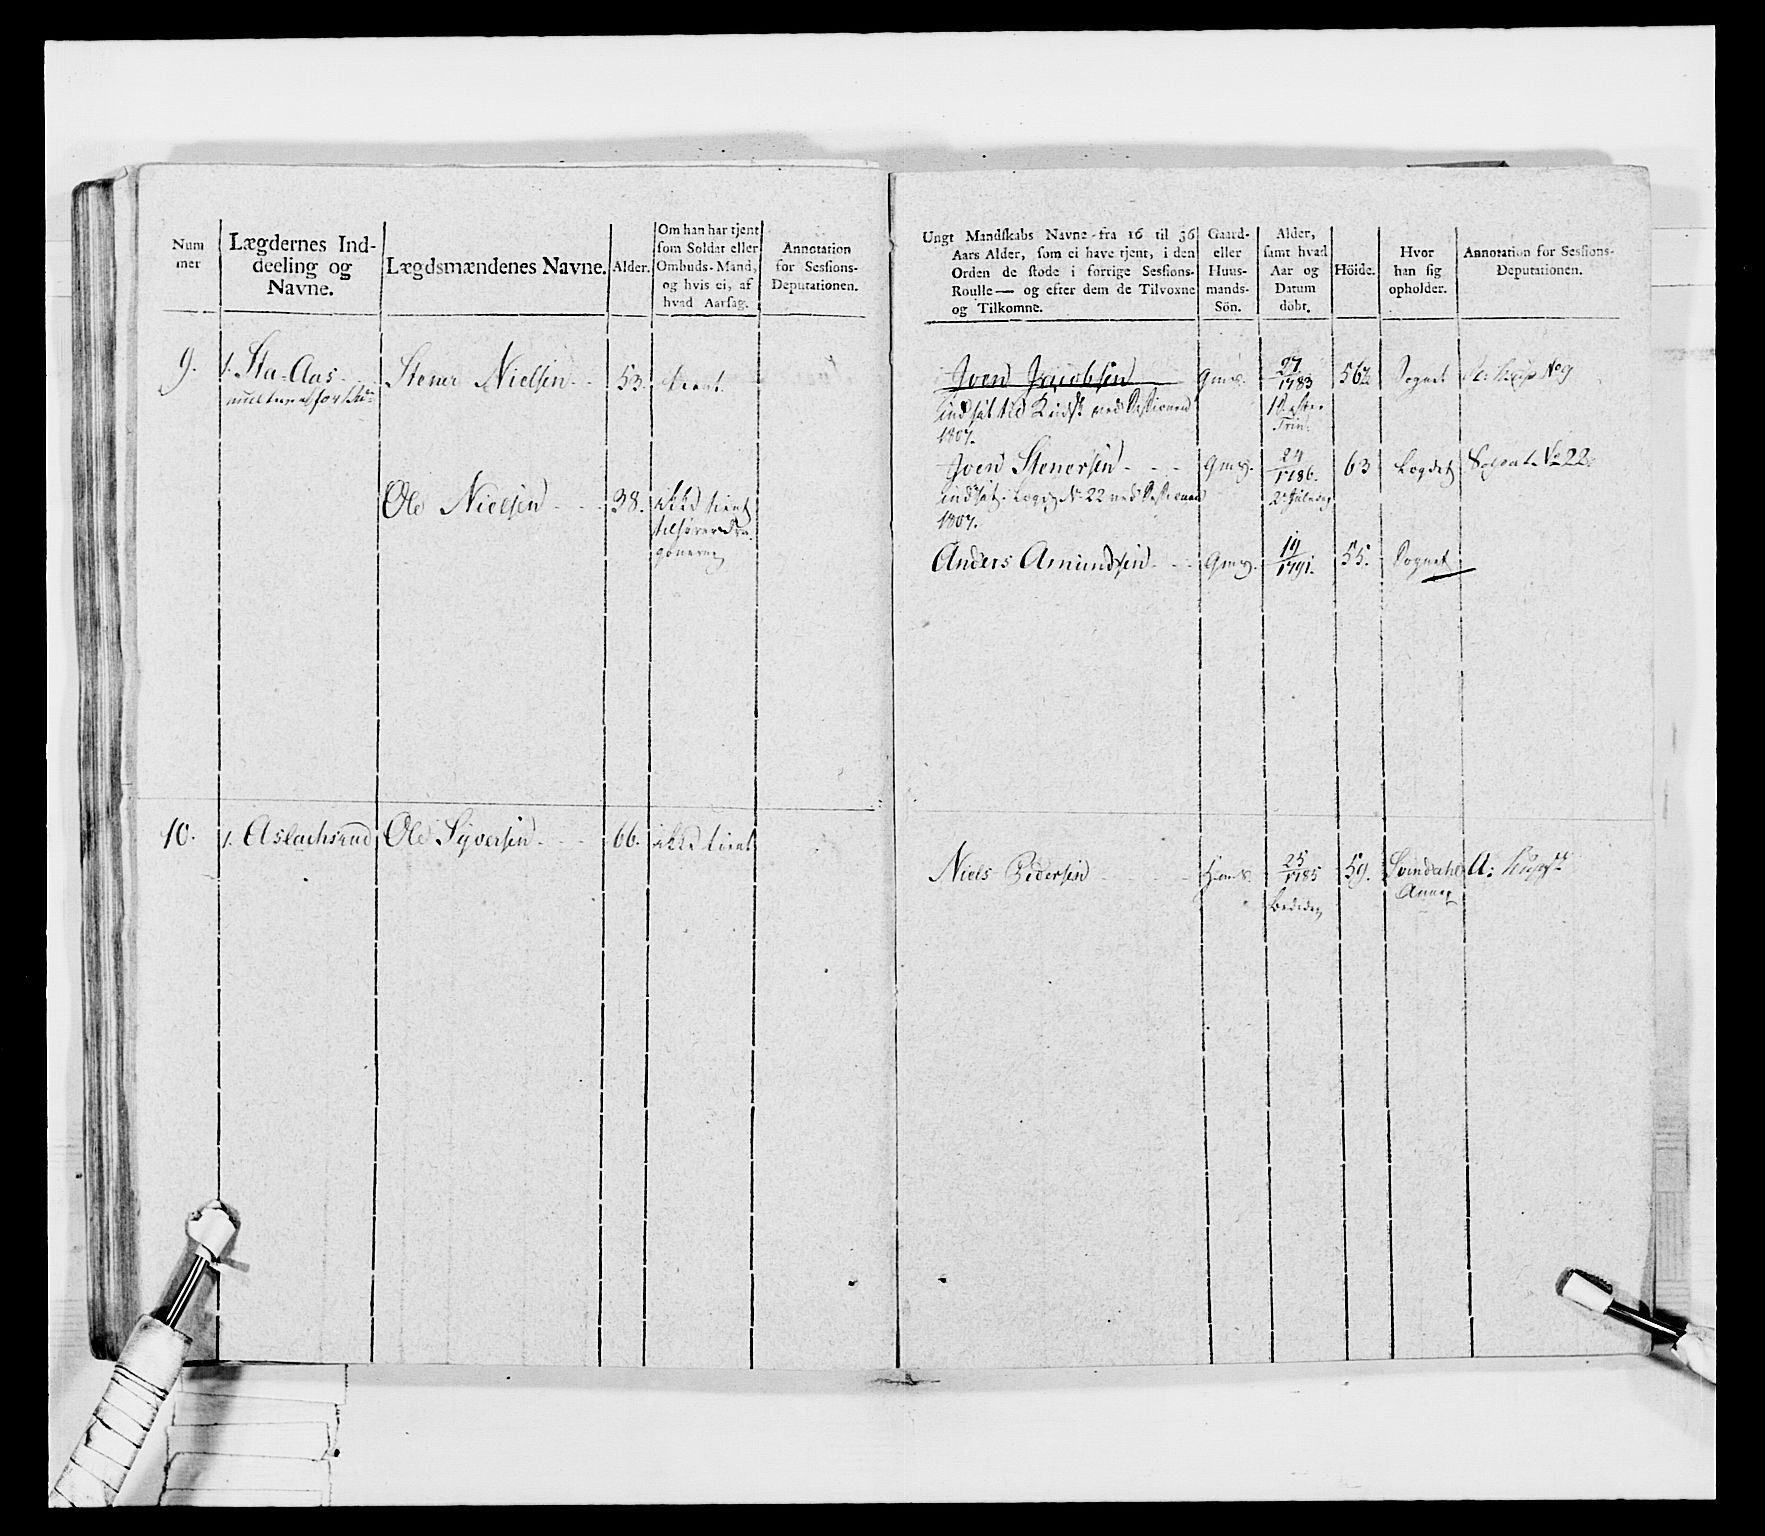 Num
mer
Lægdernes Ind-
deeling og
Navne.
Lægdsmændenes Navne.
Alder.
Om han har tjent
som Soldat eller
Ombuds-Mand,
og hvis ei, af
hvad Aarsag.
Annotation
for Sessions-
Deputationen.
9.
1. Sta-Aas
Stener Nielsen
53.
tient.
Ole Nielsen
38.
ikke tient
10.
1. Aslachsrud
Ole Syversen
66.
ikke tient
Ungt Mandskabs Navne fra 16 til 36
Aars Alder, som ei have tjent, i den
Orden de stode i forrige Sessions-
Roulle — og efter dem de Tilvoxne
og Tilkomne.
Gaard-
eller
Huus-
mands-
Sön.
Alder,
samt hvad
Aar og
Datum
döbt.
Höide.
Hvor
han sig
opholder.
Annotation for Sessions-
Deputationen.
Joen Jacobsen
27
1783
Sognet
No 9
1807.
Joen Stenersen
24
1786.
63
Lægdet
Soldat No 22.
No 22 ved Sessionen
1807.
Anders Amundsen
19
1791.
55.
Sognet
Niels Pedersen
25
1785
59.
Svindahl
Annex